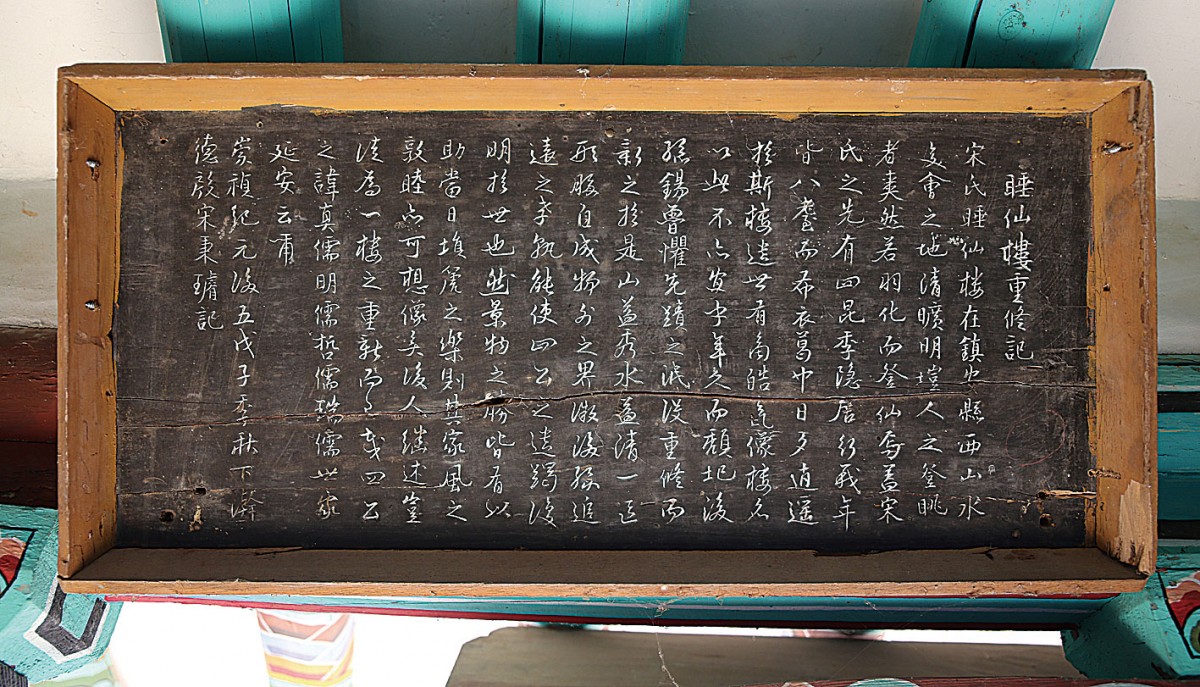 睡仙樓重修記
宋氏睡仙樓在鎭安縣西山水
交會之地淸曠明塏人之登眺
者爽然若羽化而登仙焉蓋宋
氏之先有四昆季隱居行義年
皆八耋而布衣葛巾日夕逍遥
於斯樓遠世有商皓氣像樓名
以此不亦宜乎年久而頹圮後
孫錫曺懼先蹟之泯沒重修而
新之於是山益秀水益淸一區
形勝自成物外之界微後孫追
遠之孝孰能使四公之遺躅復
明於世也然景物之勝皆有以
助當日塤箎之樂則其家風之
敦睦亦可想像矣後人繼述豈
徒爲一樓之重新而已哉四公
之諱眞儒明儒哲儒瑞儒世家
延安云爾
崇禎紀元後五戊子季秋下澣
德殷宋秉璿記